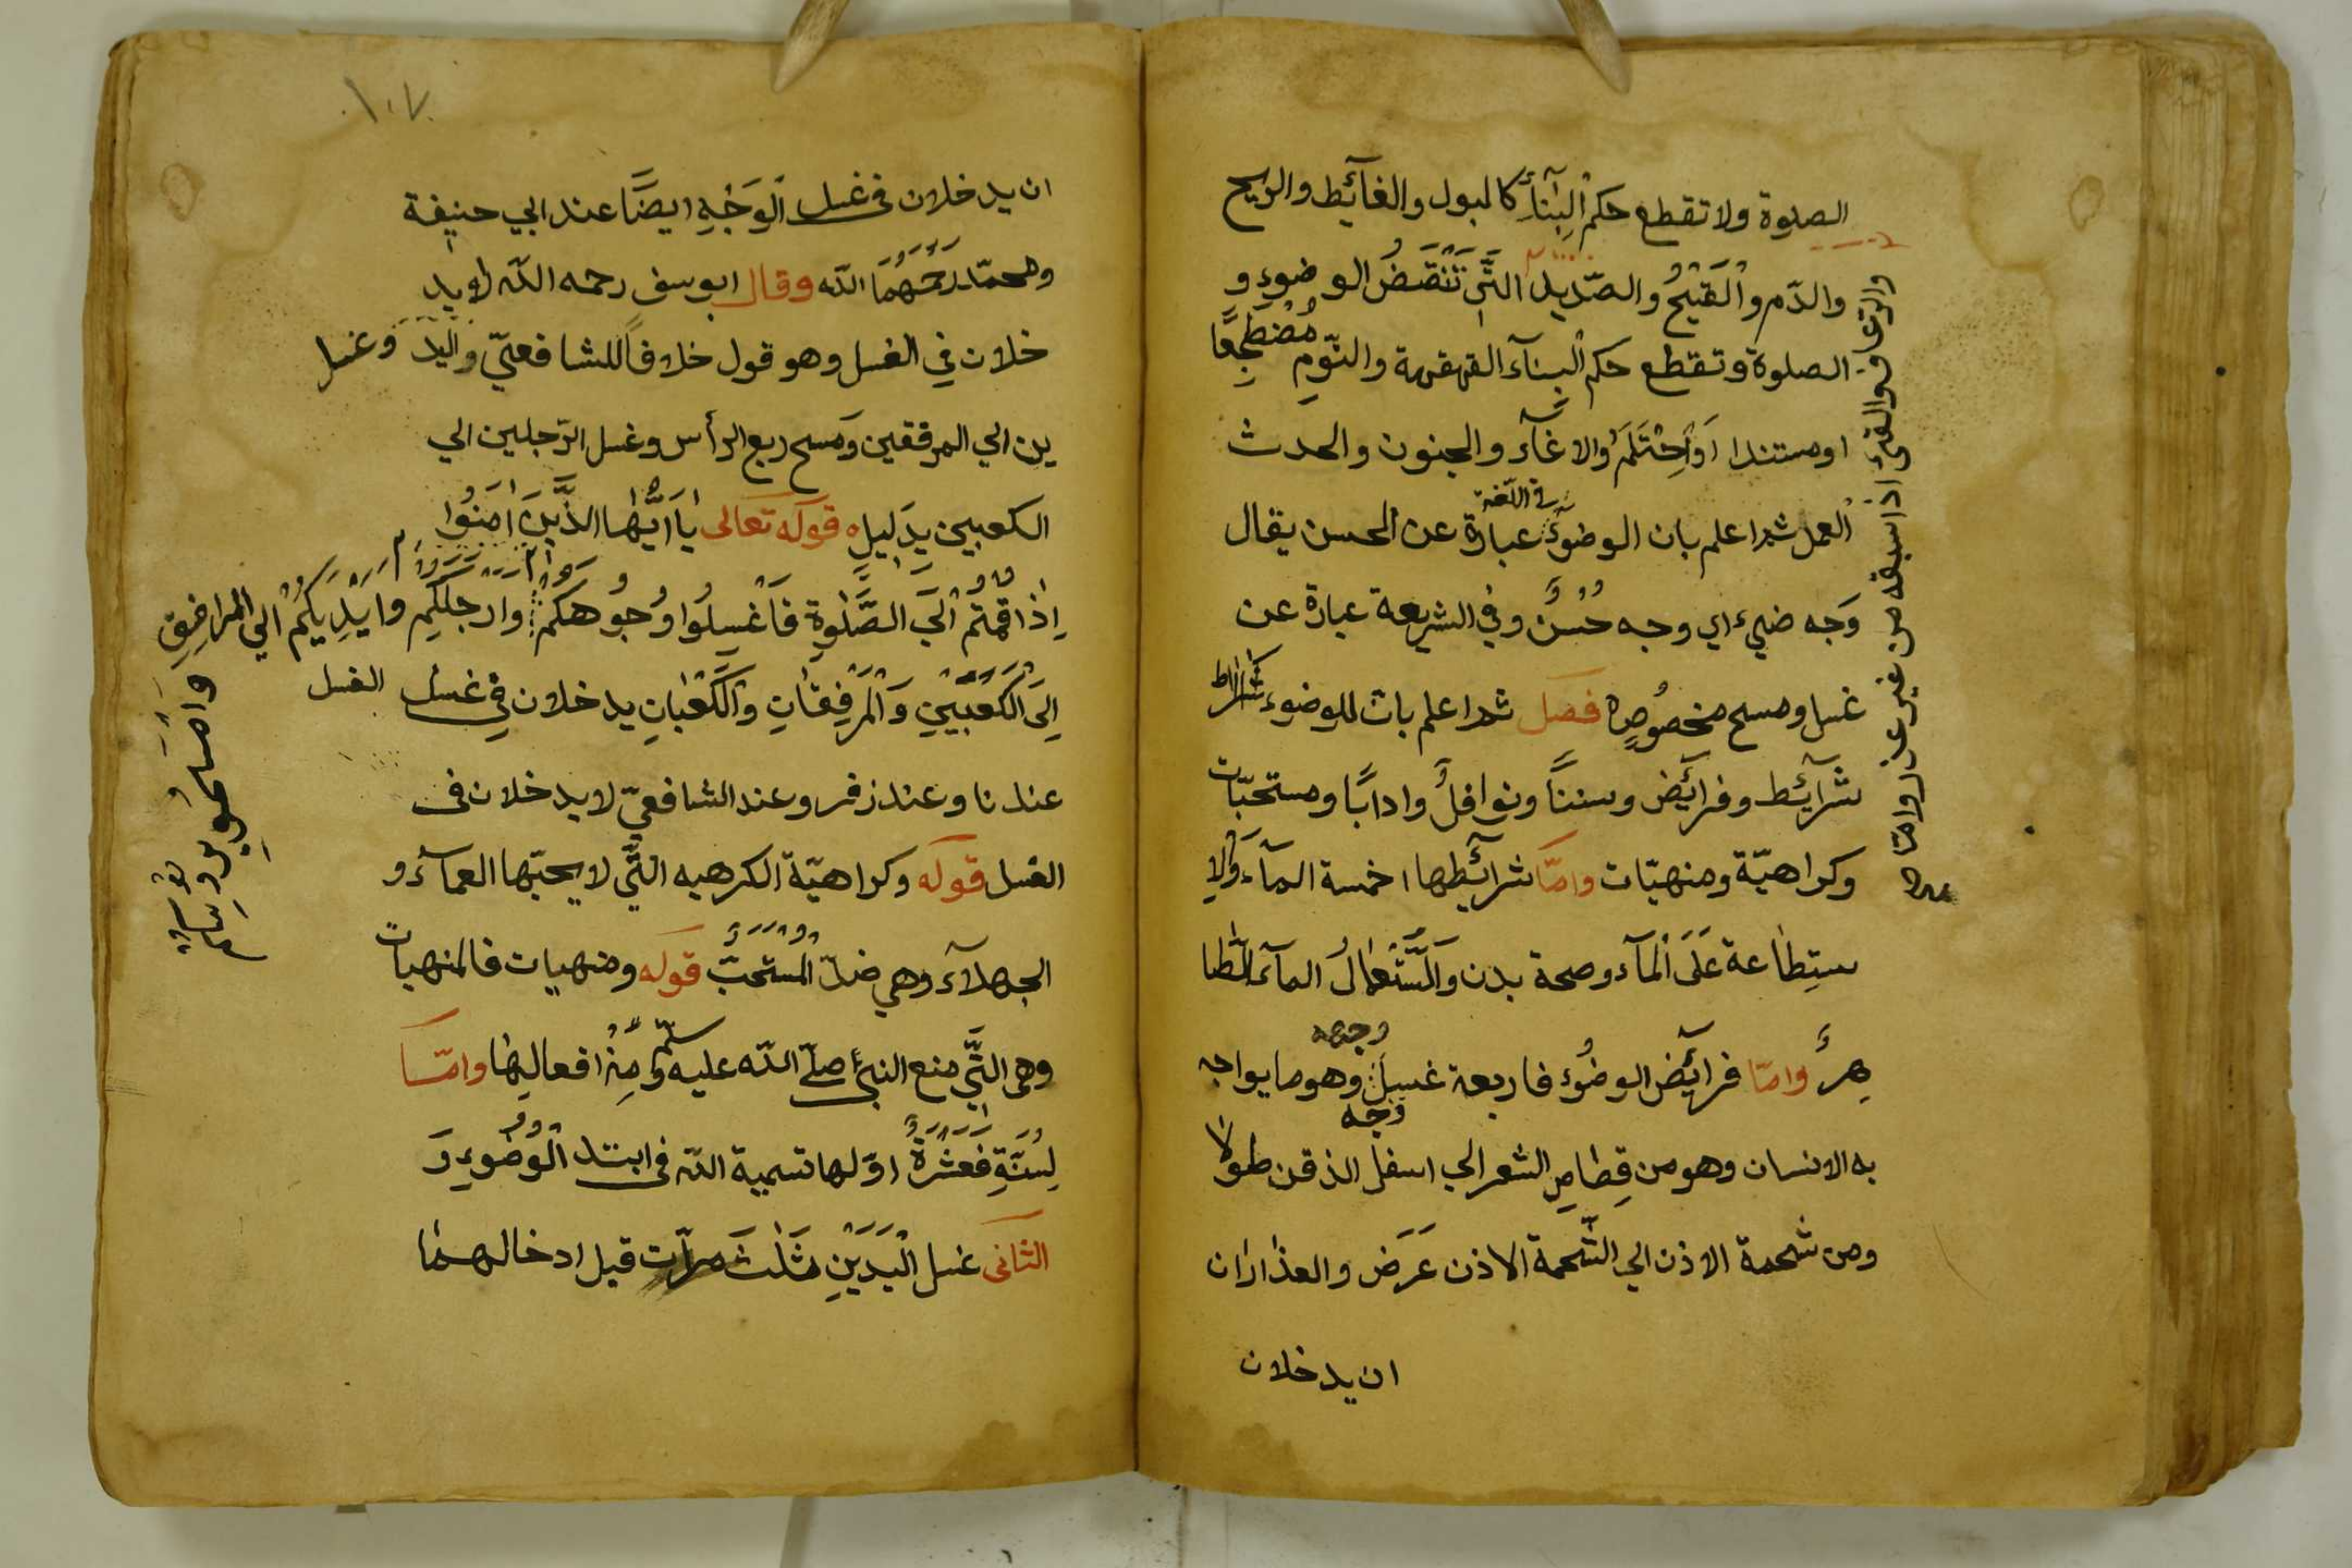 الصلوة ولا تقطع حكم البِنَآءِ كالبول والغآئط والريح
والدّم والْقَيْحُ والصّديد التَّي تَنْقَضُ الوضوءِ و
الصلوة وتقطع حكم الْبِنآءَ القهقهة والنّومِ مُضْطَجِعًا
او مستندا اَوْاِحْتَلَمَ والاغمآء والجنون والحدث
العمل ثم اعلم بان الوضوءُ فى اللّغة عبارة عن الحسن يقال
وَجه ضيء اي وجه حُسْنٌ وفي الشريعة عبارة عن
غسل ومسح مخصُوصٍ فصل ثم اعلم بان للوضوء شرائط
شرآئط وفرآئض وسننًا ونوافلُ وادابًا ومستحبّات
وكراهيّة ومنهيّات وامّا شرآئطها خمسة المآء وَالاِ
ستِطاعة عَلَى الْمآء وصحة بدن المآء الطّا
هِرُ وامّا فرآئض الوضُوء فاربعة غسل وجهه وهو ما يواجه
وجه
به الانسان وهو من قِصَاصِ الشعر الي اسفل الذقن طولا
ومن شحمة الاذن الي الشّحمة الاذن عَرَض والعذاران
ان يدخلان
والقئ اذا سبقه من غير وامّا
١٠٧
ان يدخلان فى غسل الْوَجْهِ ايضًا عند ابي حنيفة
ومحمّد رَحِمَهُمَا الله وقال ابو يوسف رحمه الله لا يد
خلان فِي الغسل وهو قول خلافًا للشافعىّ وغسل اليد
ين الي المرفقين وَمسح ربع الرأس وغسل الرّجلين الي
الكعبين بِدَلِيلِ قوله تعالى يَا اَيُّهَا الذَّيِنَ اٰمَنُوا
اِذا قمتُم الَي الصَّلوةِ فَاغْسِلُوا وُجُوهَكُمْ وارجلكم وايْدِيَكُمْ الي المرافِقِ
وامسحوا برؤسكم
اِلَى الْكَعْبَيْنِ وَالْمِرْفِقَانِ والْكَعْبَانِ يدخلان فِي غسل الغسل
عندنا وعند زفر وعند الشافعىّ لا يدخلان فى
الغسل قوله وكراهيّة الكرهيه التَّي لا يحبّها العمآء و
الجهلآء وهي ضدّ الْمُسْتَحَبَّ قوله ومنهيات فالمنهيات
وهى التَّي منع النبىّ صلّى الله عليه وسلّم مِنْ افعالِهَا وامّا
لِسُنَّةِ فَعَشْرَةُ اوّلها تسمية الله فى ابتد الْوُضُوءِ وَ
الثانى غسل الْيَدَيْنِ ثَلٰثَ مرّات قبل ادخالهما